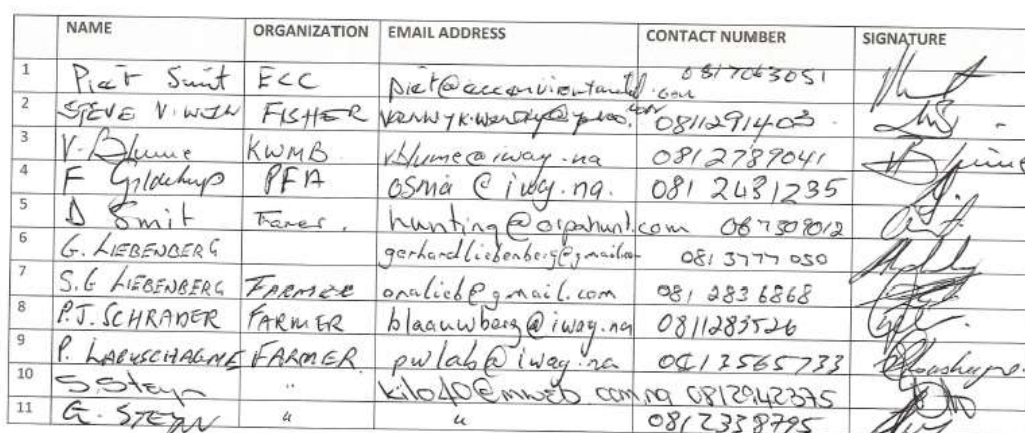 NAME ORGANIZATION EMAIL ADDRESS CONTACT NUMBER SIGNATURE
1 Piet Smit ECC 0817063051
2 STEVE V. WYK FISHER 0811291403
3 V. Blume KWMB vblume@iway.na 0812789041
4 F PFA osma@iway.na. 081 2431235
5 D Smit hunting@orpahunt.com 067309012
6 G. LIEBENBERG gerhardliebenberg@gmail.com 081 3777 050
7 S.G LIEBENBERG FARMER onalieb@gmail.com 081 2836868
8 P.J. SCHRADER FARMER blaauwberg@iway.na 0811283526
9 P. LABUSCHAGNE FARMER. pwlab@iway.na 0813565733
10 S Steyn " kilo40@mweb.com.na 0812942375
11 G. STEYN " " 0812338795